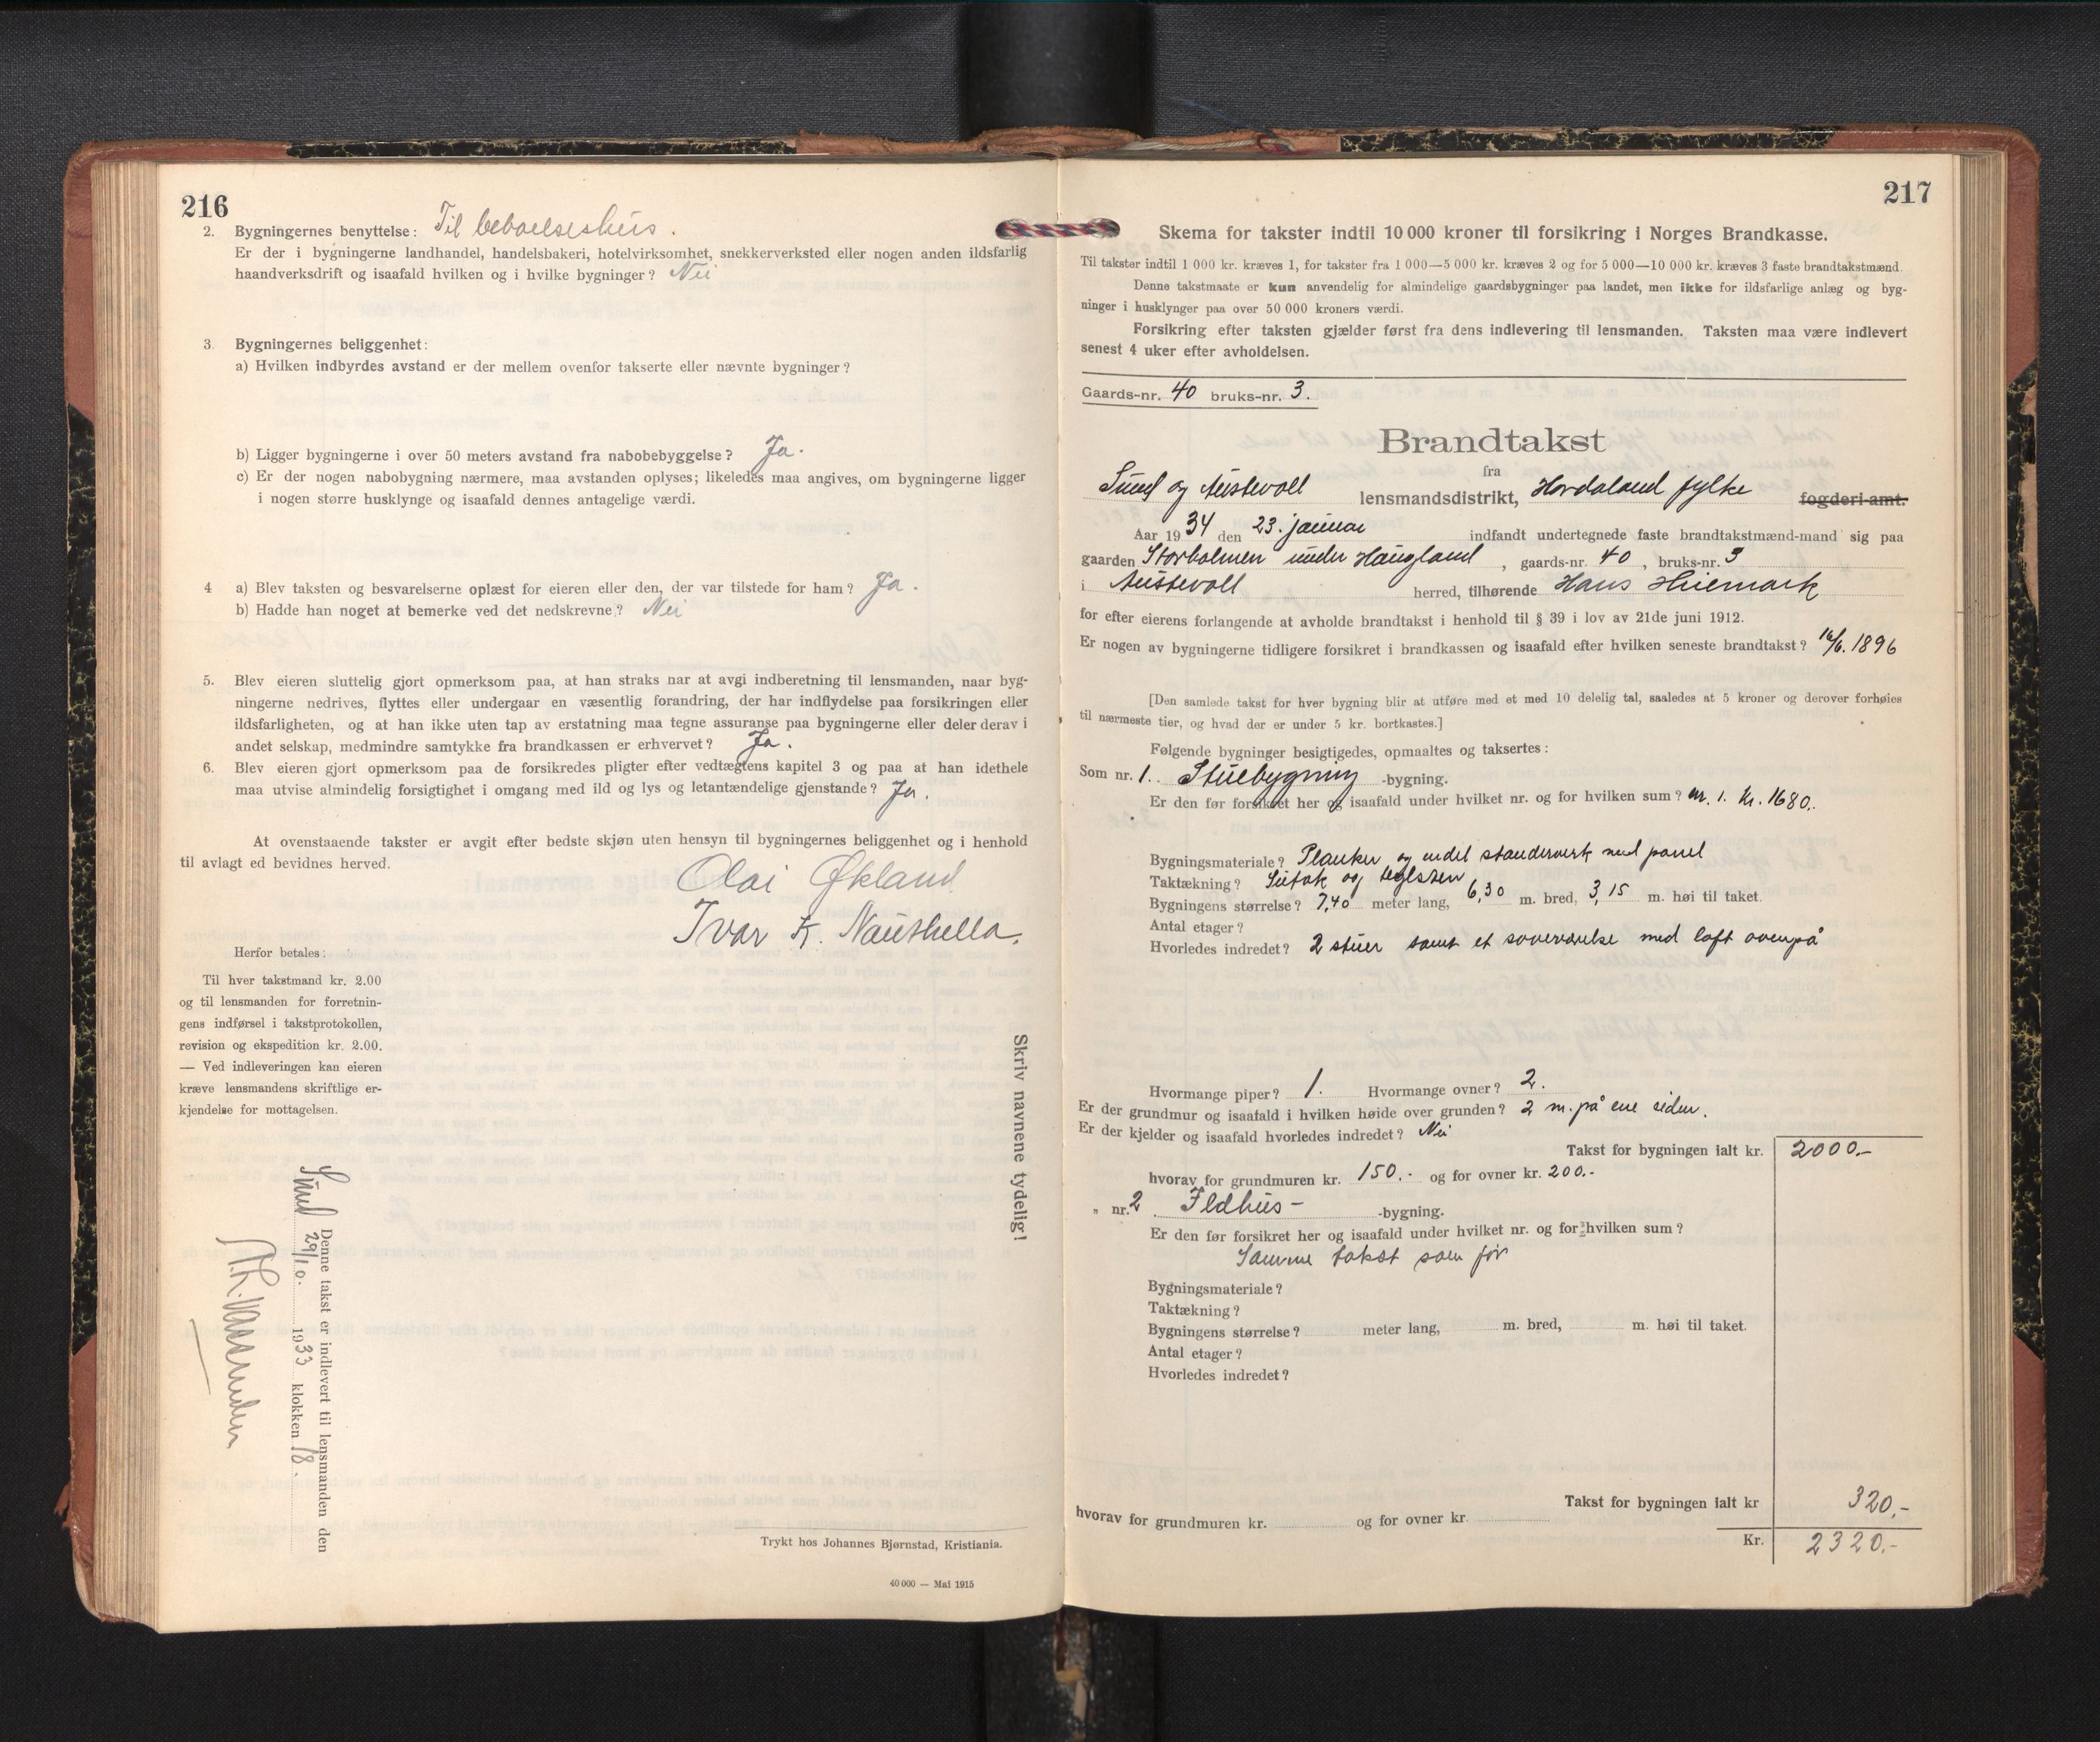 216
2. Bygningernes benyttelse: Til beboelseshus.
Er der i bygningerne landhandel, handelsbakeri, hotelvirksomhet, snekkerverksted eller nogen anden ildsfarlig
haandverksdrift og isaafald hvilken og i hvilke bygninger? Nei
3. Bygningernes beliggenhet:
a) Hvilken indbyrdes avstand er der mellem ovenfor takserte eller nævnte bygninger?
b) Ligger bygningerne i over 50 meters avstand fra nabobebyggelse? Ja.
c) Er der nogen nabobygning nærmere, maa avstanden oplyses; likeledes maa angives, om bygningerne ligger
i nogen større husklynge og isaafald dennes antagelige værdi.
4 a) Blev taksten og besvarelserne oplæst for eieren eller den, der var tilstede for ham? Ja.
b) Hadde han noget at bemerke ved det nedskrevne? Nei
5. Blev eieren sluttelig gjort opmerksom paa, at han straks har at avgi indberetning til lensmanden, naar byg-
ningerne nedrives, flyttes eller undergaar en væsentlig forandring, der har indflydelse paa forsikringen eller
ildsfarligheten, og at han ikke uten tap av erstatning maa tegne assuranse paa bygningerne eller deler derav i
andet selskap, medmindre samtykke fra brandkassen er erhvervet? Ja.
6. Blev eieren gjort opmerksom paa de forsikredes pligter efter vedtægtens kapitel 3 og paa at han idethele
maa utvise almindelig forsigtighet i omgang med ild og lys og letantændelige gjenstande? Ja.
At ovenstaaende takster er avgit efter bedste skjøn uten hensyn til bygningernes beliggenhet og i henhold
til avlagt ed bevidnes herved.
Olai Økland
Ivar K. Naushella.
Herfor betales:
Til hver takstmand kr. 2.00
og til lensmanden for forretnin-
gens indførsel i takstprotokollen,
revision og ekspedition kr. 2.00.
— Ved indleveringen kan eieren
kræve lensmandens skriftlige er-
kjendelse for mottagelsen.
Skriv navnene tydelig!
Denne takst er indlevert til lensmanden den
Sund 29/10. 1933 klokken 18.
Trykt hos Johannes Bjørnstad, Kristiania.
40 000 — Mai 1915
217
Skema for takster indtil 10 000 kroner til forsikring i Norges Brandkasse.
Til takster indtil 1 000 kr. kræves 1, for takster fra 1 000—5 000 kr. kræves 2 og for 5 000—10 000 kr. kræves 3 faste brandtakstmænd.
Denne takstmaate er kun anvendelig for almindelige gaardsbygninger paa landet, men ikke for ildsfarlige anlæg og byg-
ninger i husklynger paa over 50 000 kroners værdi.
Forsikring efter taksten gjælder først fra dens indlevering til lensmanden. Taksten maa være indlevert
senest 4 uker efter avholdelsen.
Gaards-nr. 40 bruks-nr. 3.
Brandtakst
fra
Sund og Austevoll lensmandsdistrikt, Hordaland fylke fogderi-amt.
Aar 1934 den 23. januar indfandt undertegnede faste brandtakstmænd-mand sig paa
gaarden Storholmen under Haugland, gaards-nr. 40, bruks-nr. 3
i Austevoll herred, tilhørende Hans Huemark
for efter eierens forlangende at avholde brandtakst i henhold til § 39 i lov av 21de juni 1912.
Er nogen av bygningerne tidligere forsikret i brandkassen og isaafald efter hvilken seneste brandtakst? 16/6. 1896
[Den samlede takst for hver bygning blir at utføre med et med 10 delelig tal, saaledes at 5 kroner og derover forhøies
til nærmeste tier, og hvad der er under 5 kr. bortkastes.]
Følgende bygninger besigtigedes, opmaaltes og taksertes:
Som nr. 1. Stuebygning -bygning.
Er den før forsikret her og isaafald under hvilket nr. og for hvilken sum? nr. 1. kr. 1680.
Bygningsmateriale? Planker og endel standerverk med panel
Taktækning? Sutak og teglsten
Bygningens størrelse? 7,40 meter lang, 6,30 m. bred, 3,15 m. høi til taket.
Antal etager?
Hvorledes indredet? 2 stuer samt et soveværelse med loft ovenpå
Hvormange piper? 1. Hvormange ovner? 2.
Er der grundmur og isaafald i hvilken høide over grunden? 2 m. på ene siden.
Er der kjelder og isaafald hvorledes indredet? Nei
Takst for bygningen ialt kr. 2000.-
hvorav for grundmuren kr. 150.- og for ovner kr. 200.-
„ nr. 2 Ildhus- -bygning.
Er den før forsikret her og isaafald under hvilket nr. og for hvilken sum?
Samme takst som før
Bygningsmateriale?
Taktækning?
Bygningens størrelse? meter lang, m. bred, m. høi til taket.
Antal etager?
Hvorledes indredet?
Takst for bygningen ialt kr 320,-
hvorav for grundmuren kr. og for ovner kr.
Kr. 2320.-